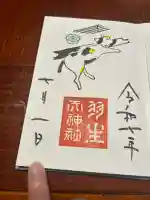 令和七年
羽生
七月一日